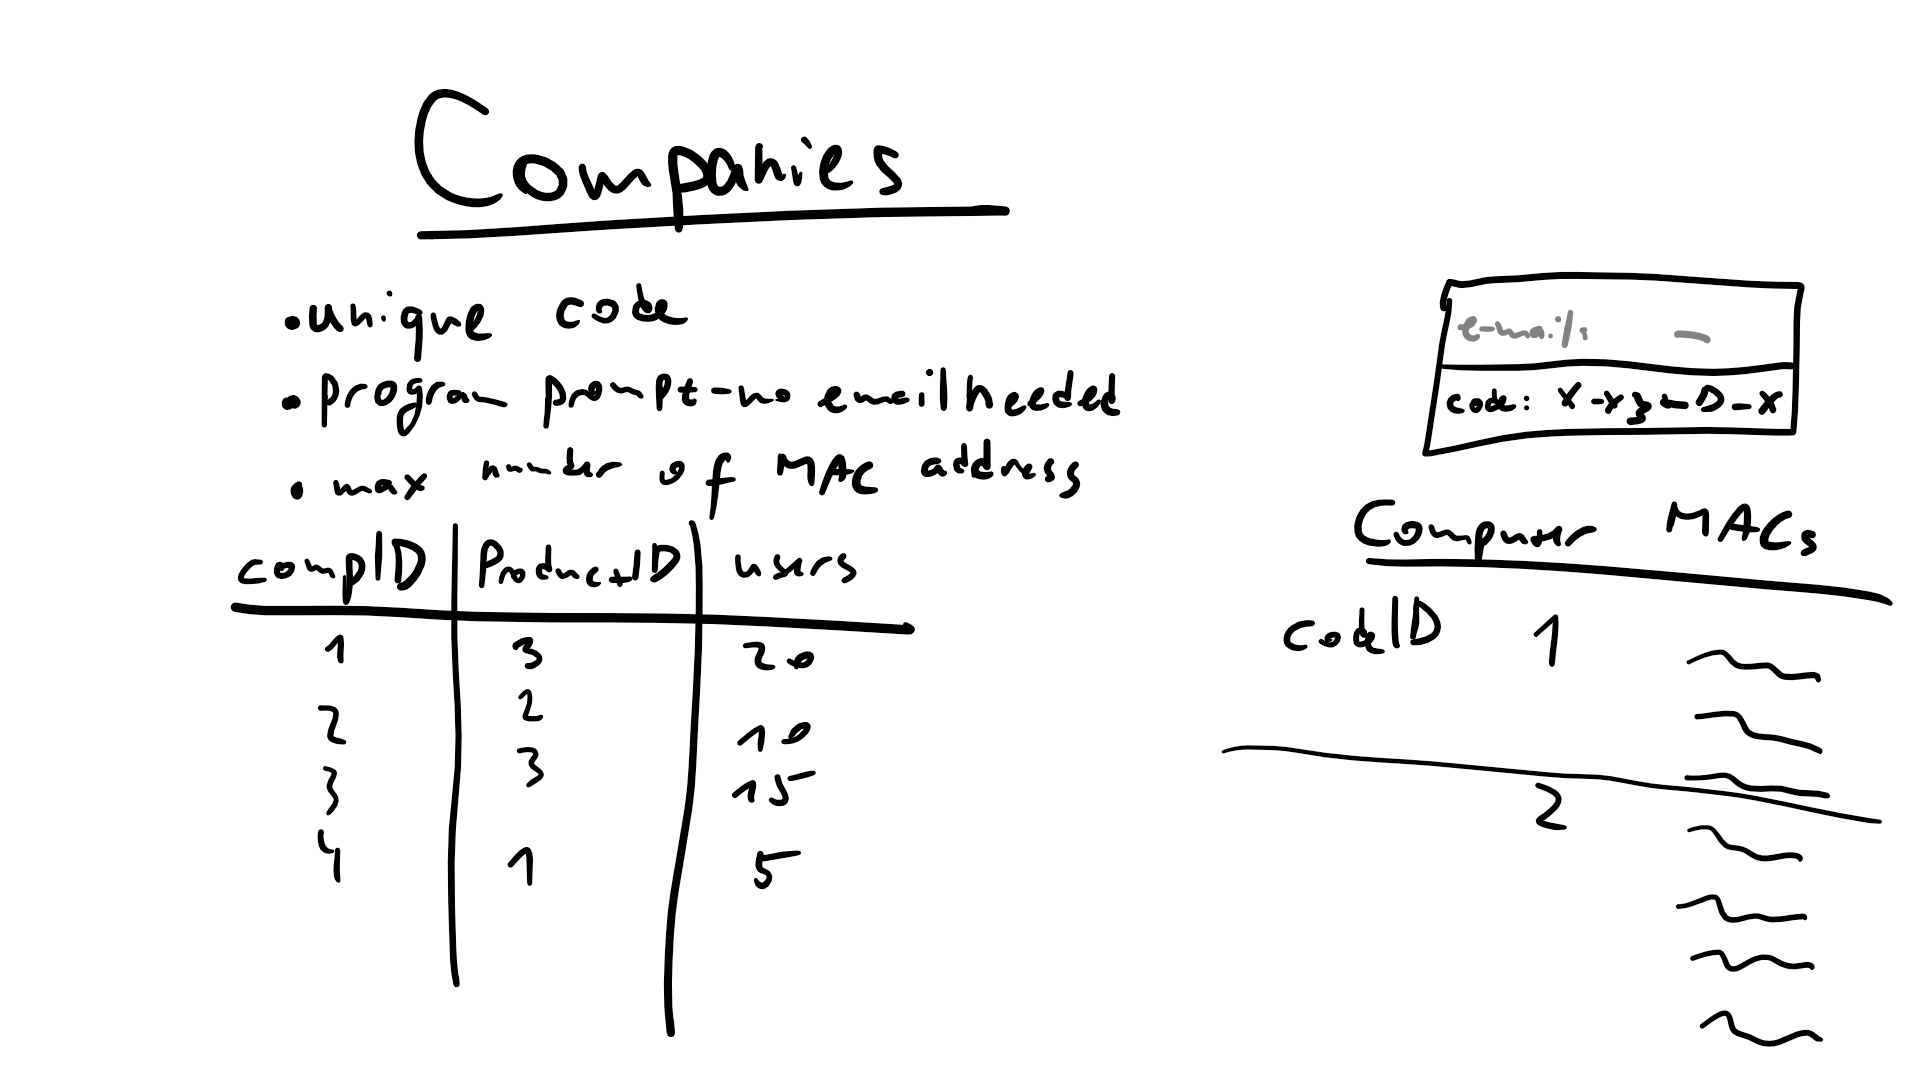 Companies
• unique code
• program prompt-no email needed
• max number of MAC address
compID ProductID users
1 3 20
2 2 10
3 3 15
4 1 5
e-mail: -
code: X-xz-D-X
Computer MACs
codeID 1
2